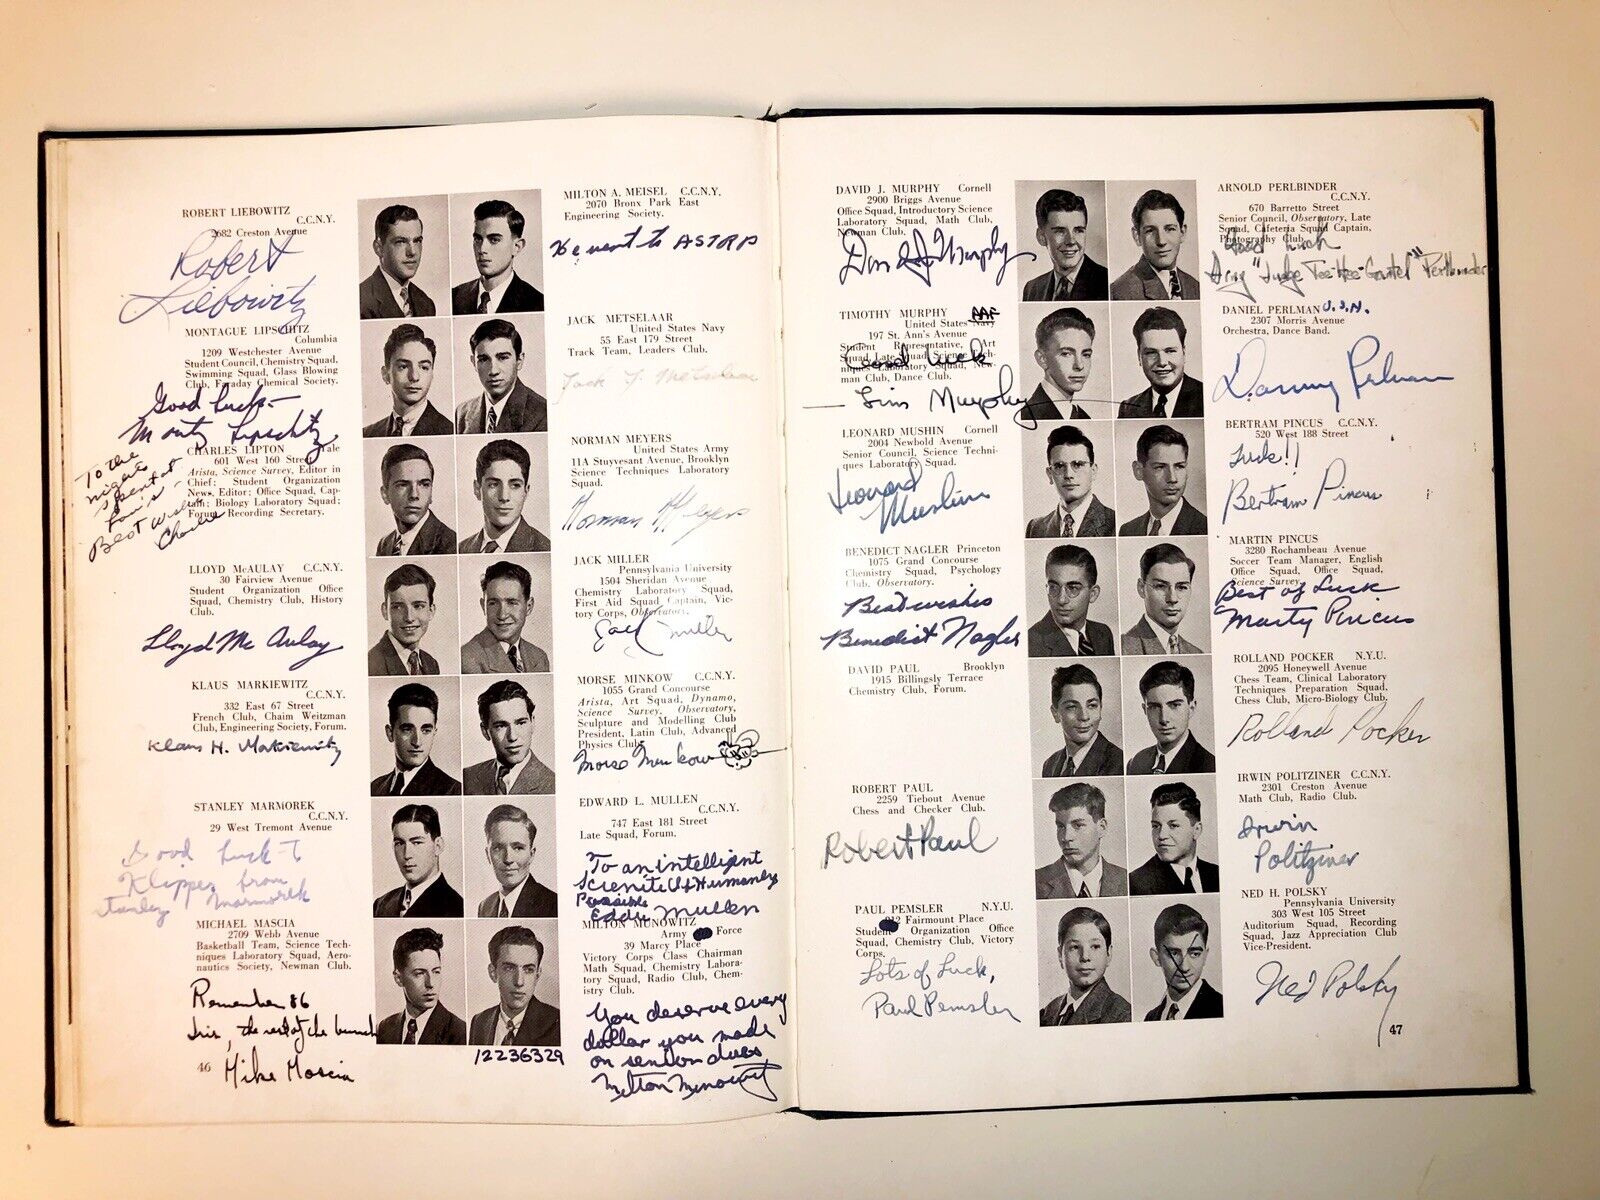 ROBERT LIEBOWITZ
C.C.N.Y.
2682 Creston Avenue
Robert
Liebowitz
MONTAGUE LIPSCHITZ
Columbia
1209 Westchester Avenue
Student Council, Chemistry Squad,
Swimming Squad, Glass Blowing
Club, Faraday Chemical Society.
Good Luck-
Monty Lipschitz
CHARLES LIPTON Yale
601 West 160 Street
Arista, Science Survey, Editor in
Chief; Student Organization
News, Editor; Office Squad, Cap-
tain; Biology Laboratory Squad;
Forum Recording Secretary.
To the
nights
spent at
Best wishes
Charlie
LLOYD McAULAY C.C.N.Y.
30 Fairview Avenue
Student Organization Office
Squad, Chemistry Club, History
Club.
Lloyd Mc Aulay
KLAUS MARKIEWITZ
C.C.N.Y.
332 East 67 Street
French Club, Chaim Weitzman
Club, Engineering Society, Forum.
Klaus H. Markiewitz
STANLEY MARMOREK
C.C.N.Y.
29 West Tremont Avenue
Good Luck to
Klipper from
Stanley Marmorek
MICHAEL MASCIA
2709 Webb Avenue
Basketball Team, Science Tech-
niques Laboratory Squad, Aero-
nautics Society, Newman Club.
Remember 86
the rest of the bunch
46 Mike Mascia
12236329
MILTON A. MEISEL C.C.N.Y.
2070 Bronx Park East
Engineering Society.
He went to ASTRP
JACK METSELAAR
United States Navy
55 East 179 Street
Track Team, Leaders Club.
Jack J. Metselaar
NORMAN MEYERS
United States Army
11A Stuyvesant Avenue, Brooklyn
Science Techniques Laboratory
Squad.
Norman Meyers
JACK MILLER
Pennsylvania University
1504 Sheridan Avenue
Chemistry Laboratory Squad,
First Aid Squad Captain, Vic-
tory Corps, Observatory.
Jack Miller
MORSE MINKOW C.C.N.Y.
1055 Grand Concourse
Arista, Art Squad, Dynamo,
Science Survey, Observatory,
Sculpture and Modelling Club
President, Latin Club, Advanced
Physics Club.
Morse Minkow
EDWARD L. MULLEN
C.C.N.Y.
747 East 181 Street
Late Squad, Forum.
To an intelligent
Possible
Eddie Mullen
MILTON MUNOWITZ
Army Force
39 Marcy Place
Victory Corps Class Chairman
Math Squad, Chemistry Labora-
tory Squad, Radio Club, Chem-
istry Club.
You deserve every
dollar you made
on senior dues
Milton Munowitz
DAVID J. MURPHY Cornell
2900 Briggs Avenue
Office Squad, Introductory Science
Laboratory Squad, Math Club,
Newman Club.
J Murphy
TIMOTHY MURPHY AAF
United States Navy
197 St. Ann's Avenue
Student Representative, Art
Squad, Late Squad, Science Tech-
niques Laboratory Squad, New-
man Club, Dance Club.
Good luck
- Tim Murphy -
LEONARD MUSHIN Cornell
2004 Newbold Avenue
Senior Council, Science Techni-
ques Laboratory Squad.
Leonard
Mushin
BENEDICT NAGLER Princeton
1075 Grand Concourse
Chemistry Squad, Psychology
Club, Observatory.
Best wishes
Benedict Nagler
DAVID PAUL Brooklyn
1915 Billingsly Terrace
Chemistry Club, Forum.
ROBERT PAUL
2259 Tiebout Avenue
Chess and Checker Club.
Robert Paul
PAUL PEMSLER N.Y.U.
Fairmount Place
Student Organization Office
Squad, Chemistry Club, Victory
Corps.
Lots of Luck,
Paul Pemsler
ARNOLD PERLBINDER
C.C.N.Y.
670 Barretto Street
Senior Council, Observatory, Late
Squad, Cafeteria Squad Captain,
Photography Club.
Good luck
"Judge Perlbinder
DANIEL PERLMAN U.S.N.
2307 Morris Avenue
Orchestra, Dance Band.
Danny Perlman
BERTRAM PINCUS C.C.N.Y.
520 West 188 Street
Luck!!
Bertram Pincus
MARTIN PINCUS
3280 Rochambeau Avenue
Soccer Team Manager, English
Office Squad, Office Squad,
Science Survey.
Best of Luck
Marty Pincus
ROLLAND POCKER N.Y.U.
2095 Honeywell Avenue
Chess Team, Clinical Laboratory
Techniques Preparation Squad,
Chess Club, Micro-Biology Club.
Rolland Pocker
IRWIN POLITZINER C.C.N.Y.
2301 Creston Avenue
Math Club, Radio Club.
Irwin
Politziner
NED H. POLSKY
Pennsylvania University
303 West 105 Street
Auditorium Squad, Recording
Squad, Jazz Appreciation Club
Vice-President.
Ned Polsky
47